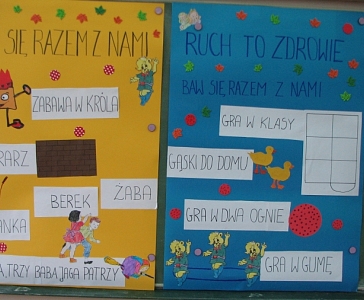 SIĘ RAZEM Z NAMI
ZABAWA W KRÓLA
RARZ
BEREK
ŻABA
ANKA
A, TRZY BABA JAGA PATRZY
RUCH TO ZDROWIE
BAW SIĘ RAZEM Z NAMI
GRA W KLASY
GĄSKI DO DOMU
GRA W DWA OGNIE
GRA W GUMĘ